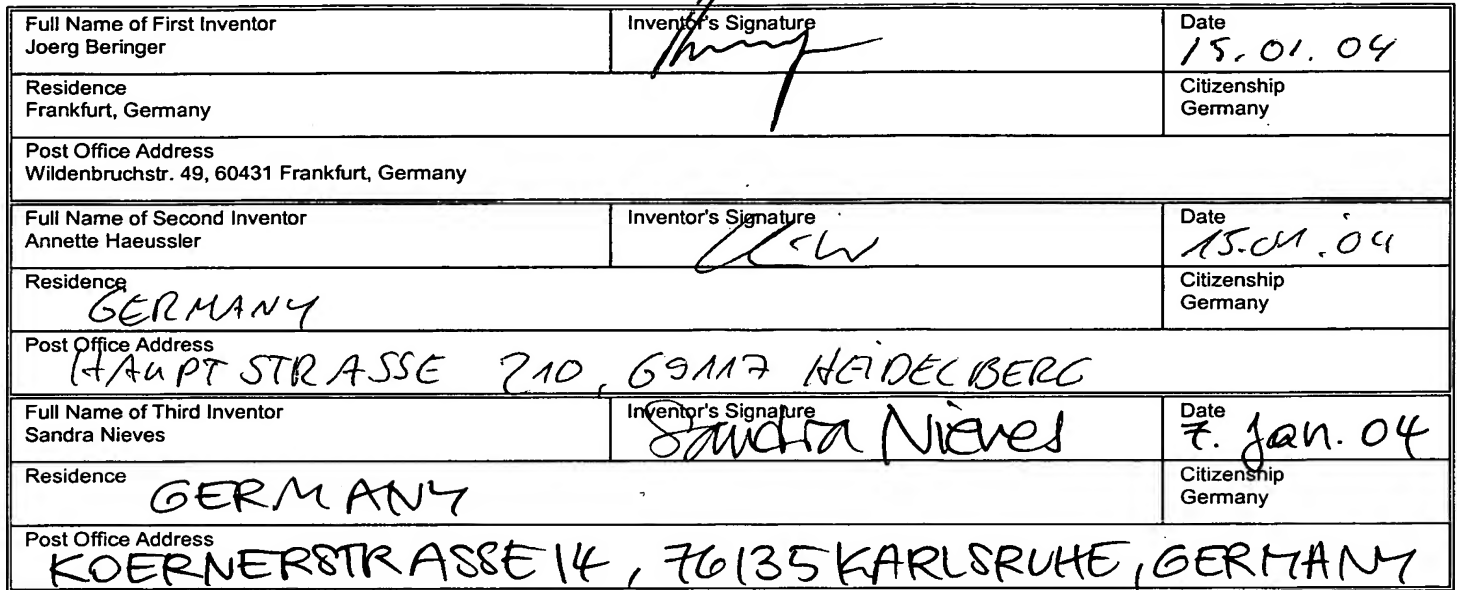 Full Name of First Inventor
Joerg Beringer
Inventor's Signature
Date
15.01.04
Residence
Frankfurt, Germany
Citizenship
Germany
Post Office Address
Wildenbruchstr. 49, 60431 Frankfurt, Germany
Full Name of Second Inventor
Annette Haeussler
Inventor's Signature
Date
15.01.04
Residence
GERMANY
Citizenship
Germany
Post Office Address
HAUPTSTRASSE 210, 69117 HEIDELBERG
Full Name of Third Inventor
Sandra Nieves
Inventor's Signature
Sandra Nieves
Date
7. Jan. 04
Residence
GERMANY
Citizenship
Germany
Post Office Address
KOERNERSTRASSE 14, 76135 KARLSRUHE, GERMANY